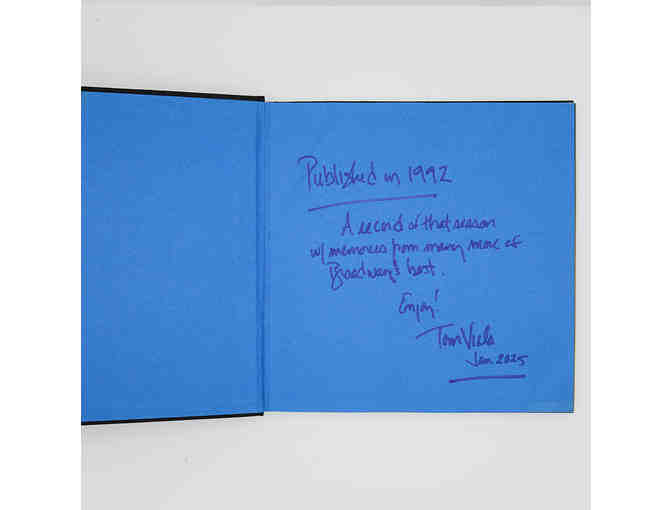 Published in 1992
A record of that season
w/ memories from many more of
Broadway's best.
Enjoy!
Tom Viola
Jan. 2025